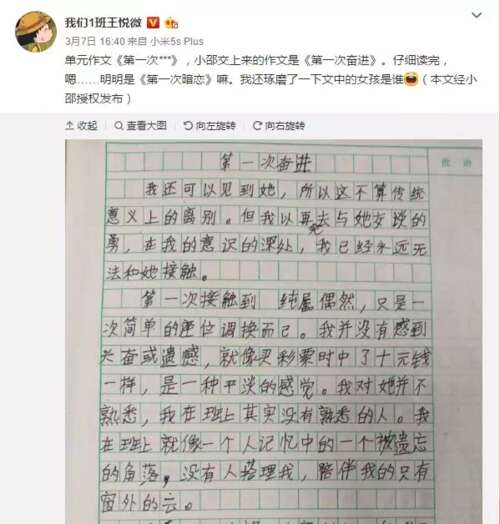 我们1班王悦微
3月7日 16:40 来自 小米5s Plus
单元作文《第一次***》，小邵交上来的作文是《第一次奋进》。仔细读完，
嗯……明明是《第一次暗恋》嘛。我还琢磨了一下文中的女孩是谁（本文经小
邵授权发布）
收起 查看大图 向左旋转 向右旋转
批语
第一次奋进
我还可以见到她，所以这不算传统
意义上的离别。但我以再去与她交谈的
勇，在我的意识的深处，我已经永远无
法和她接触。
第一次接触到 纯属偶然，只是一
次简单的座位调换而已。我并没有感到
兴奋或遗感，就像买彩票时中了十元钱
一样，是一种平淡的感觉。我对她并不
熟悉，我在班上其实没有熟悉的人。我
在班上就像一个人记忆中的一个被遗忘
的角落，没有人搭理我，陪伴我的只有
窗外的云。